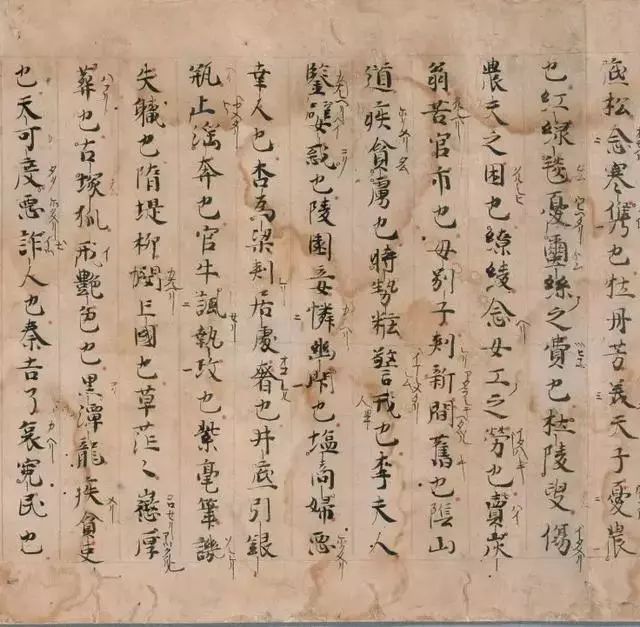 底松念寒儁也牡丹芳美天子憂農
也紅線毯憂蠶絲之費也杜陵叟傷
農夫之困也繚綾念女工之勞也賣炭
翁苦官市也母別子刺新間舊也陰山
道疾貪虜也時勢粧警戒也李夫人
鑒嬖惑也陵園妾憐幽閉也塩商婦惡
幸人也杏為梁刺居處奢也井底引銀
瓶止淫奔也官牛諷執政也紫毫筆譏
失職也隋堤柳憫亡國也草茫々懲厚
葬也古塚狐戒艶色也黒潭龍疾貪吏
也天可度惡詐人也秦吉了哀冤民也